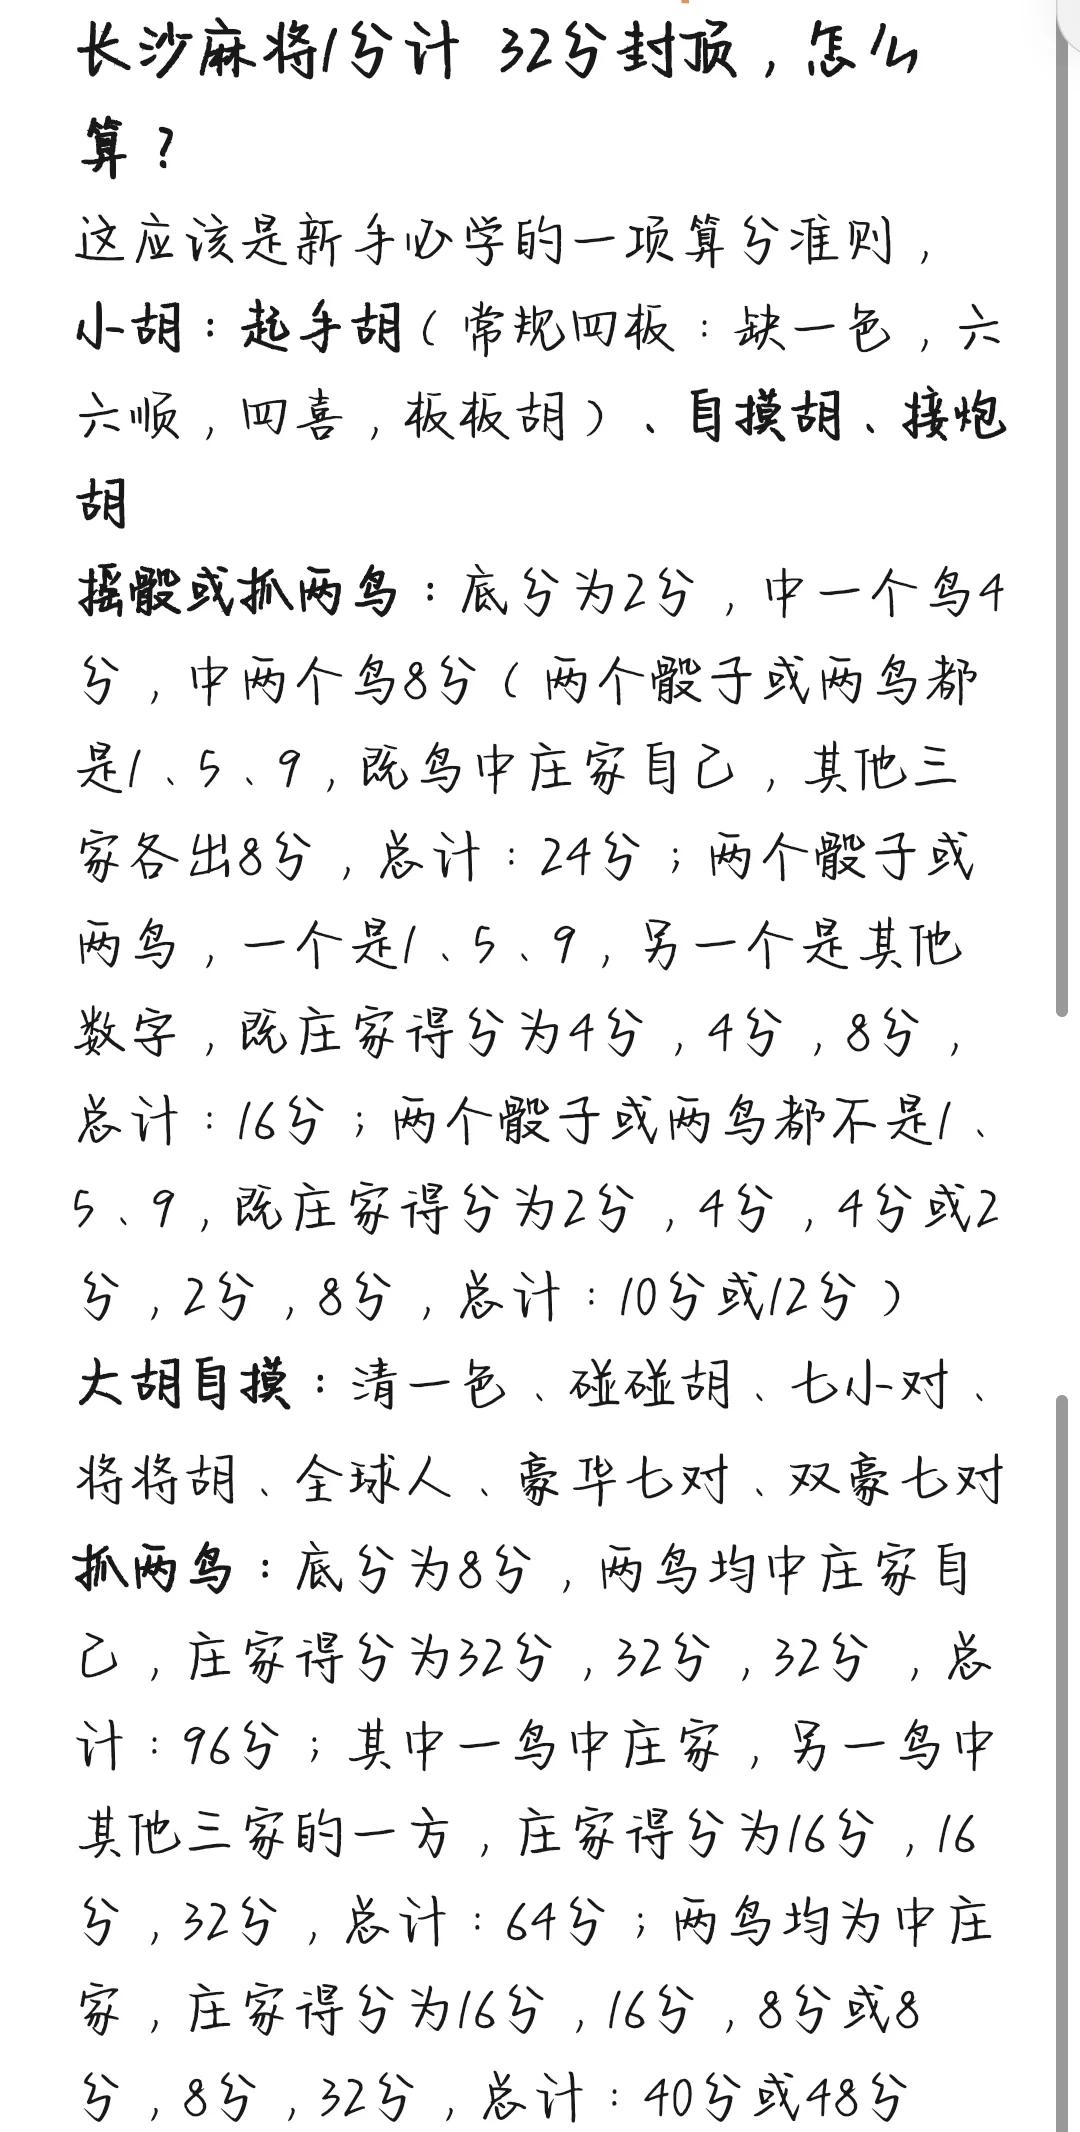 长沙麻将1分计 32分封顶，怎么
算？
这应该是新手必学的一项算分准则，
小胡：起手胡（常规四板：缺一色，六
六顺，四喜，板板胡）、自摸胡、接炮
胡
摇骰或抓两鸟：底分为2分，中一个鸟4
分，中两个鸟8分（两个骰子或两鸟都
是1、5、9，既鸟中庄家自己，其他三
家各出8分，总计：24分；两个骰子或
两鸟，一个是1、5、9，另一个是其他
数字，既庄家得分为4分，4分，8分，
总计：16分；两个骰子或两鸟都不是1、
5、9，既庄家得分为2分，4分，4分或2
分，2分，8分，总计：10分或12分）
大胡自摸：清一色、碰碰胡、七小对、
将将胡、全球人、豪华七对、双豪七对
抓两鸟：底分为8分，两鸟均中庄家自
己，庄家得分为32分，32分，32分，总
计：96分；其中一鸟中庄家，另一鸟中
其他三家的一方，庄家得分为16分，16
分，32分，总计：64分；两鸟均为中庄
家，庄家得分为16分，16分，8分或8
分，8分，32分，总计：40分或48分